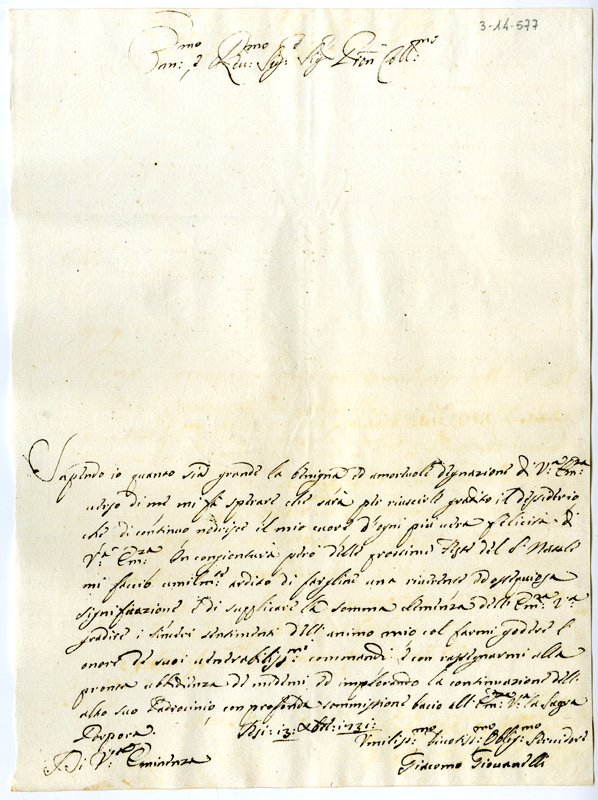 3-14-577
Em:mo e Rev:mo Sig:r Sig:r Pron Coll:mo
Sapendo io quanto sia grande la benigna ed amorevole degnazione di V:a Em:za
verso di me mi fà sperare che sarà per riuscirle gradito il dessiderio
che di continuo nodrisce il mio cuore d'ogni più vera felicità di
V:a Em:za In congiontura però delle prossime Feste del S: Natale
mi faccio umilm:te ardito di farglene una riverente ed ossequiosa
significazione e di supplicare la somma clemenza dell'Em:za V:a
gradire i sinceri sentimenti dell'animo mio col farmi godere l'
onore de suoi venerabiliss:mi comandi e con rassegnarmi alla
pronta ubidienza de medemi ed implorando la continuazione dell'
alto suo Padrocinio con profonda sommissione bacio all'Em:za V:a la Sagra
Porpora. 13: Xbre: 1731:
Di V:ra Eminenza
Umiliss:mo Divotiss:mo Oblig:mo Servidore
Giacomo Giovanelli